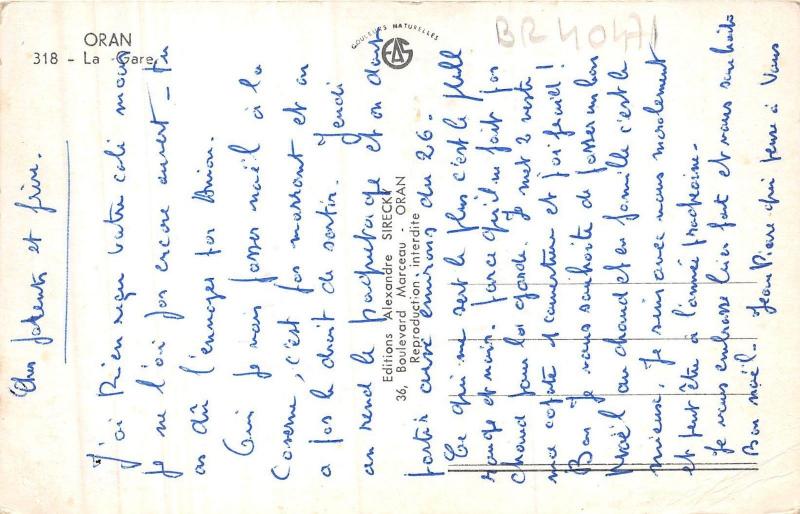 ORAN
318 - La Gare
COULEURS NATURELLES
EAS
BR40471
Editions Alexandre SIRECKY
36, Boulevard Marceau - ORAN
Reproduction interdite
Chers parents et frère.
J'ai bien reçu votre coli mais
je ne l'ai pas encore ouvert - tu
as dû l'envoyer par avion.
Oui je vais passer noël à la
caserne, c'est pas marrant et on
a pas le droit de sortir. Jeudi
on rend le paquetage et on doit
partir au environs du 26.
Ce qui me sert le plus c'est le pull
rouge et noir. parce qu'il ne fait pas
chaud pour les garde. Je met 2 veste
ma capote et couverture et j'ai froid!
Bon je vous souhaite de passer un bon
Noël au chaud et en famille c'est le
mieux, Je suis avec vous moralement
et peut être à l'année prochaine.
Je vous embrasse bien fort et vous souhaite
Bon noël. Jean Pierre qui pense à Vous